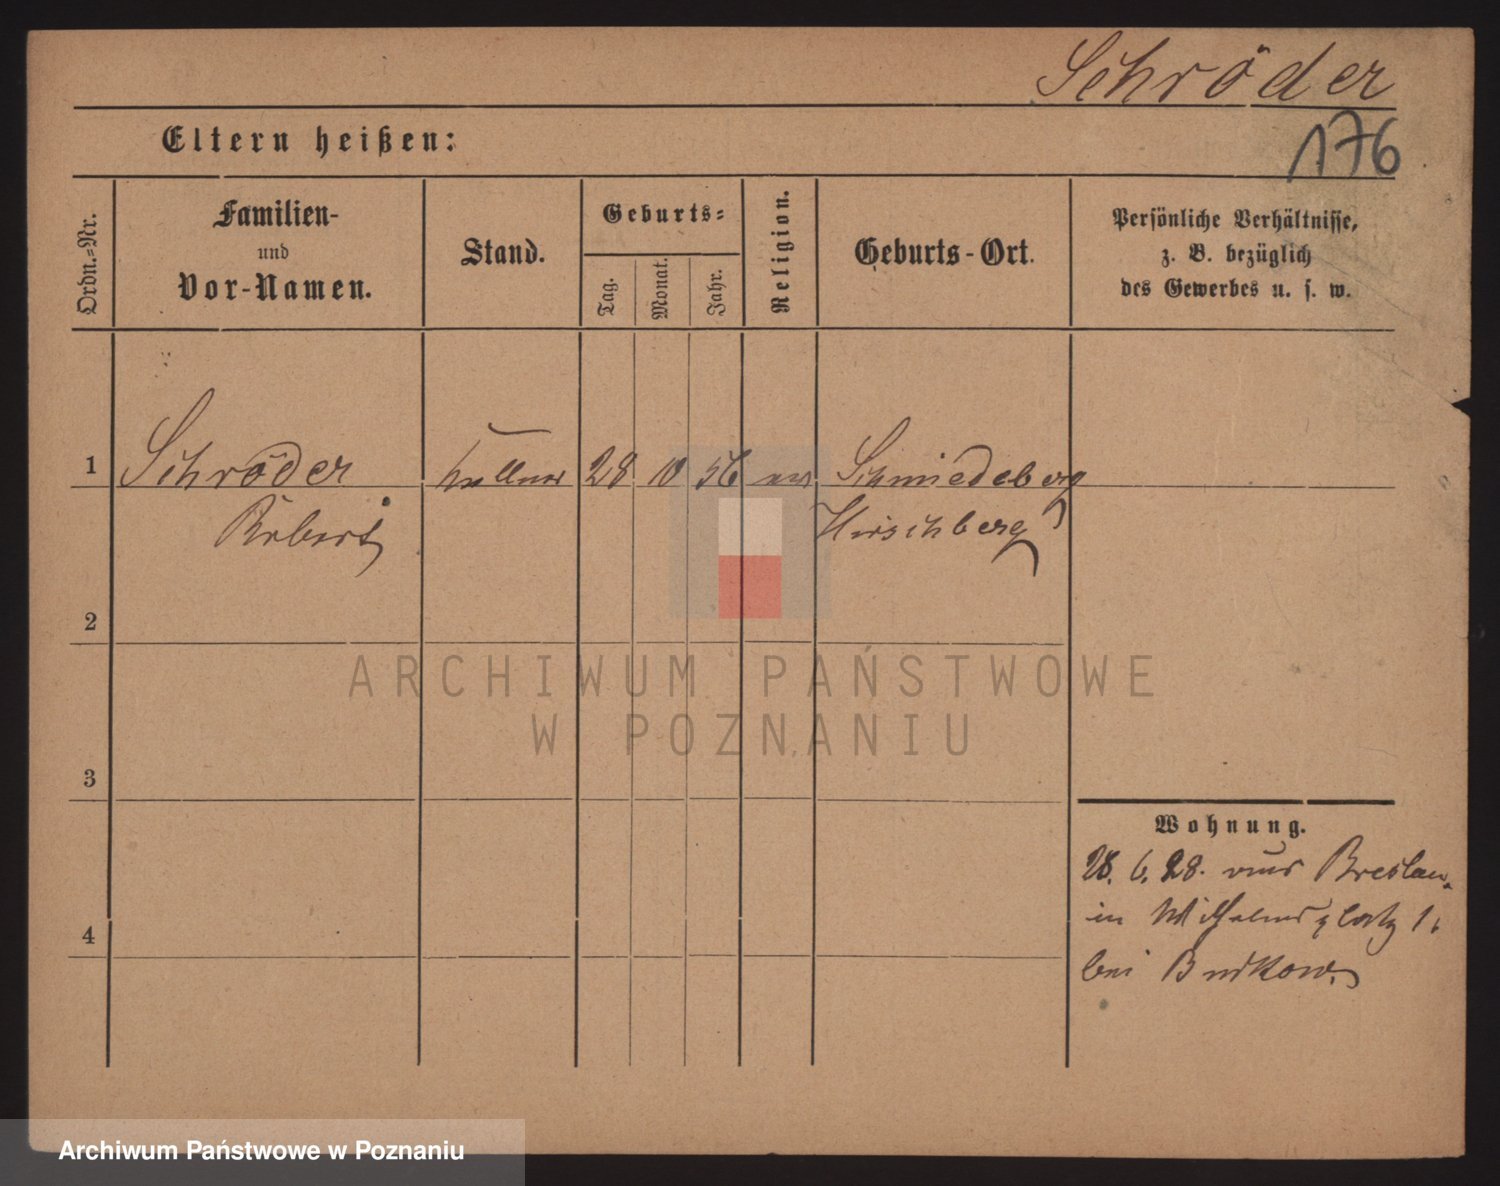 Schröder
176
Eltern heißen:
Ordn.-Nr.
Familien-
und
Vor-Namen.
Stand.
Geburts-
Tag.
Monat.
Jahr.
Religion.
Geburts-Ort.
Persönliche Verhältnisse,
z. B. bezüglich
des Gewerbes u. s. w.
1 Schröder Kellner 28 10 56 ev Schmiedeberg
Robert Hirschberg
2
3
4
Wohnung.
28. 6. 28. aus Breslau.
in Wilhelmsplatz 1.
bei
ARCHIWUM PAŃSTWOWE
W POZNANIU
Archiwum Państwowe w Poznaniu